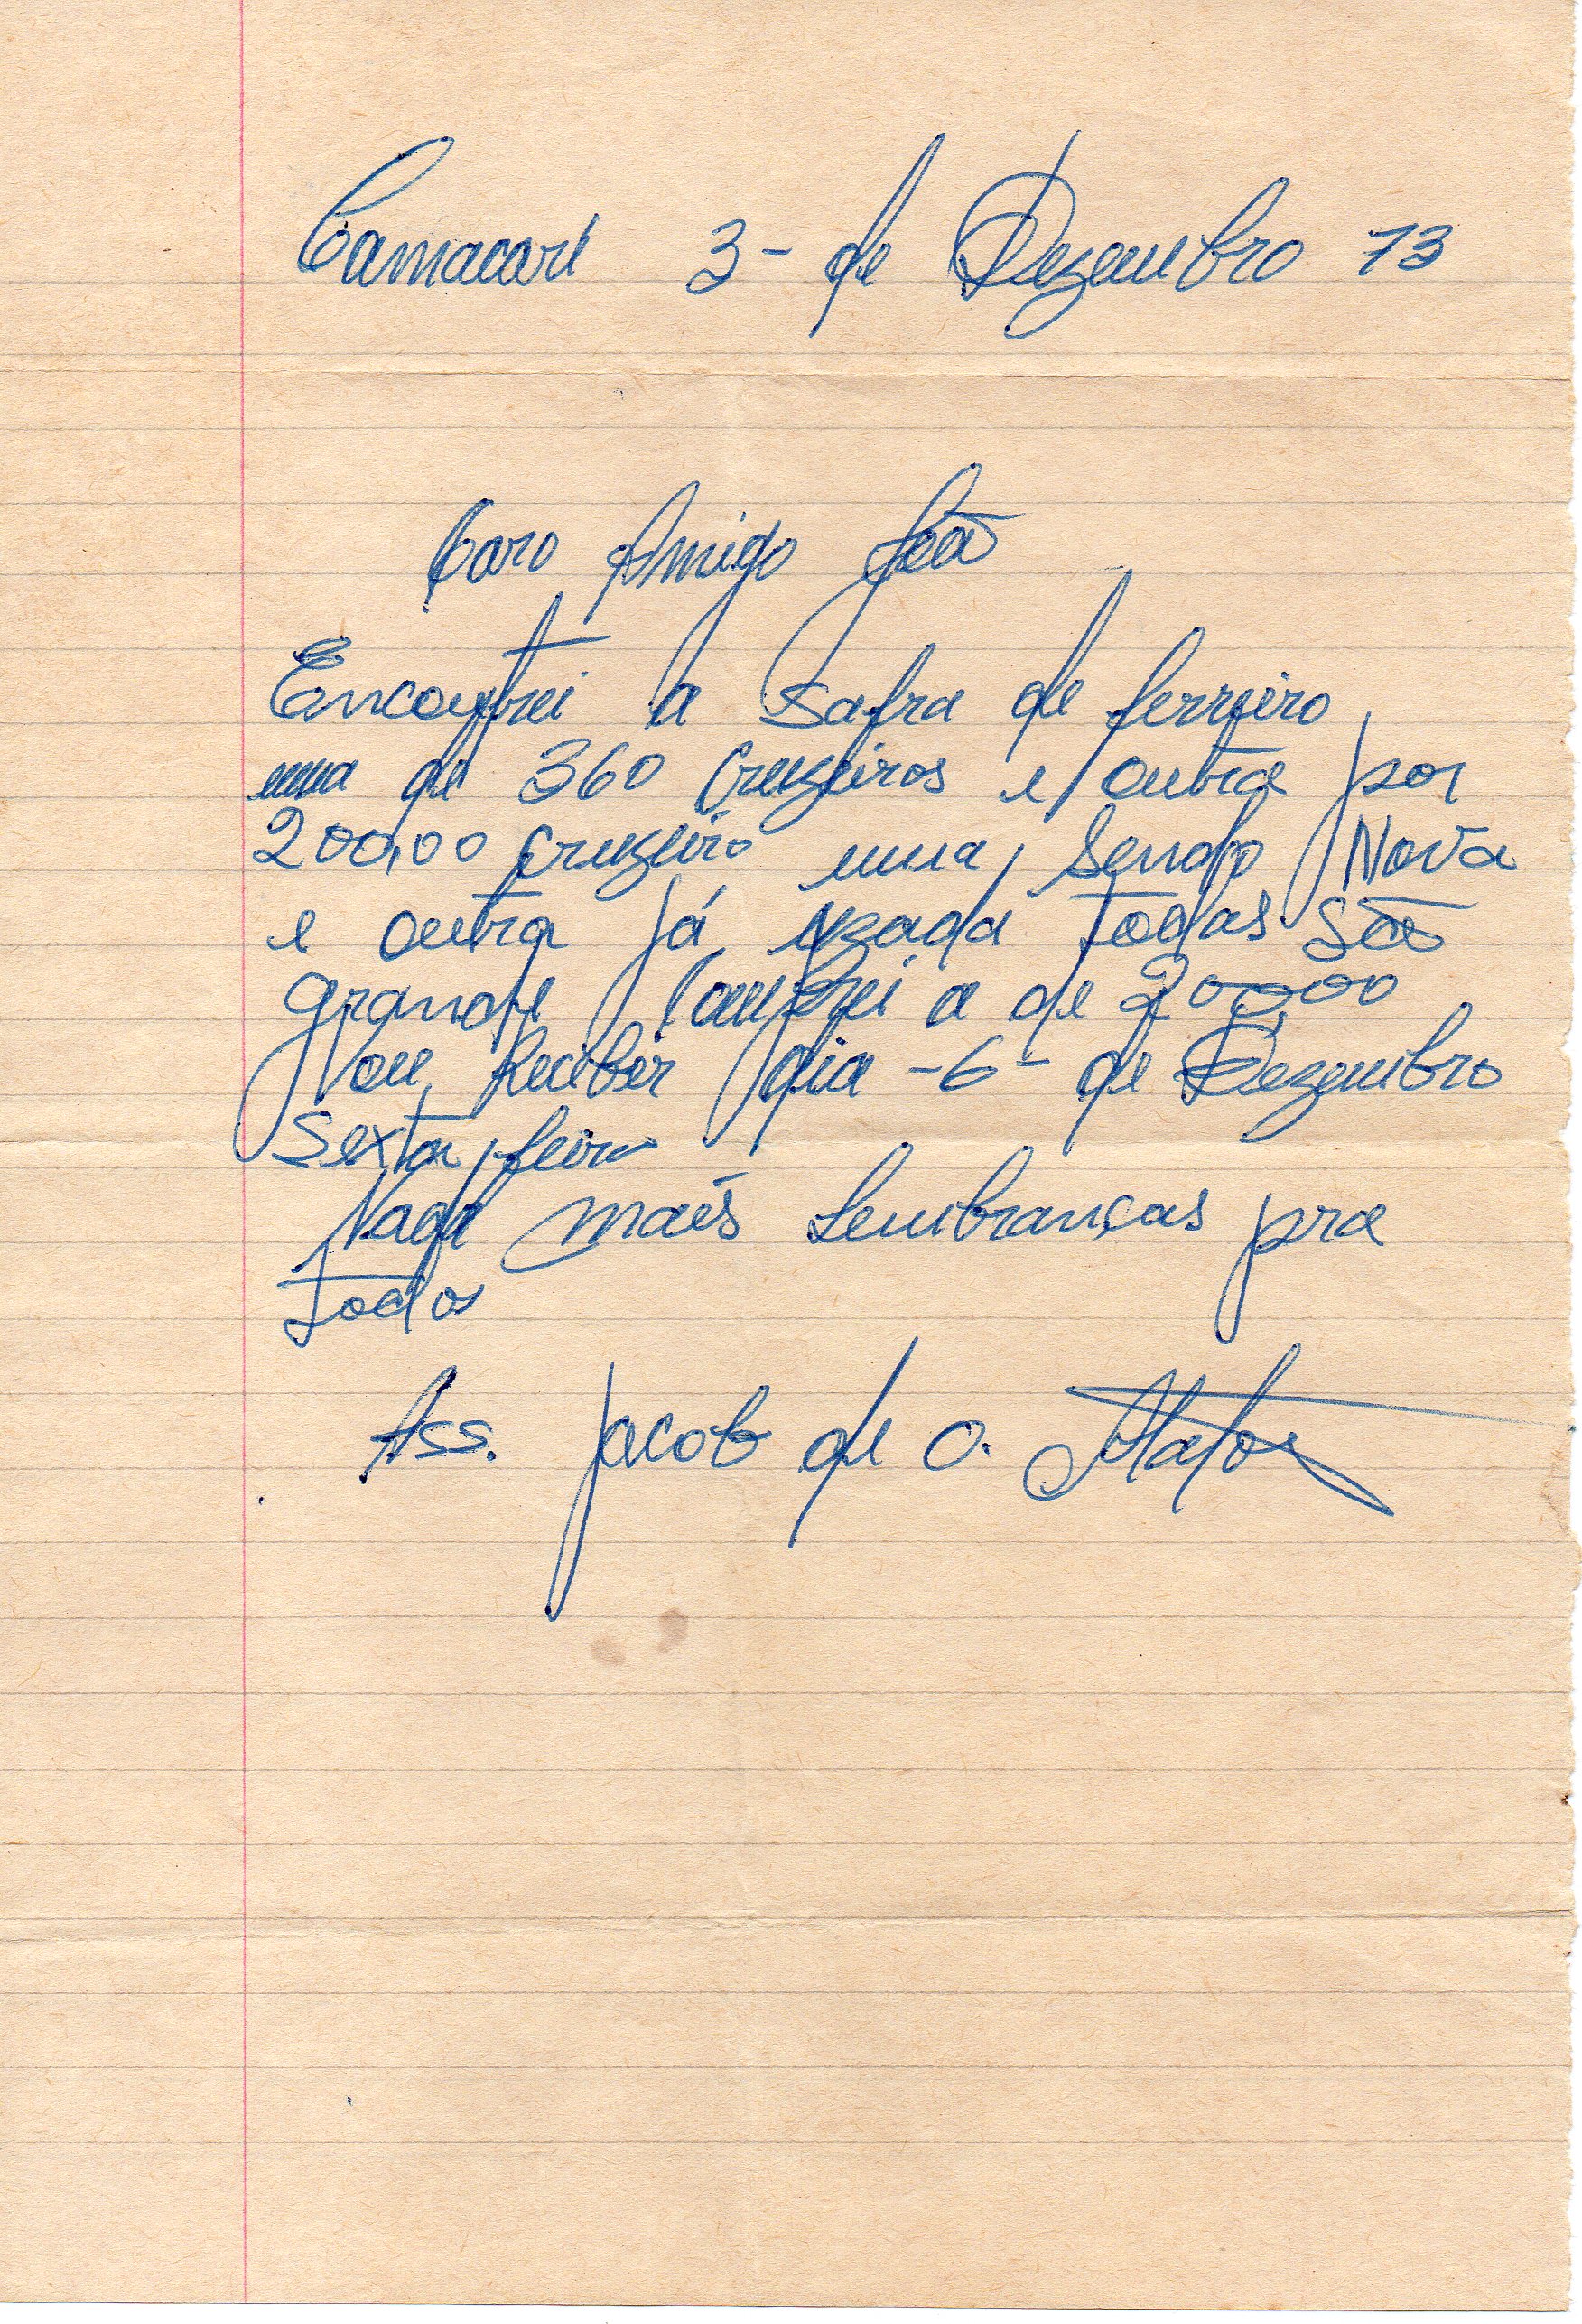 Camacari 3 - de Dezembro 73
Caro Amigo João
Encontrei a Safra de ferreiro
uma de 360 Cruzeiros e outra por
200,00 cruzeiro uma, Sendo Nova
e outra já uzada todas São
grande Comprei a de 200,00
Vou Receber dia - 6 - de Dezembro
Sexta feira
Nada mais Lembranças pra
todos
Ass. Jacob de O. Matos